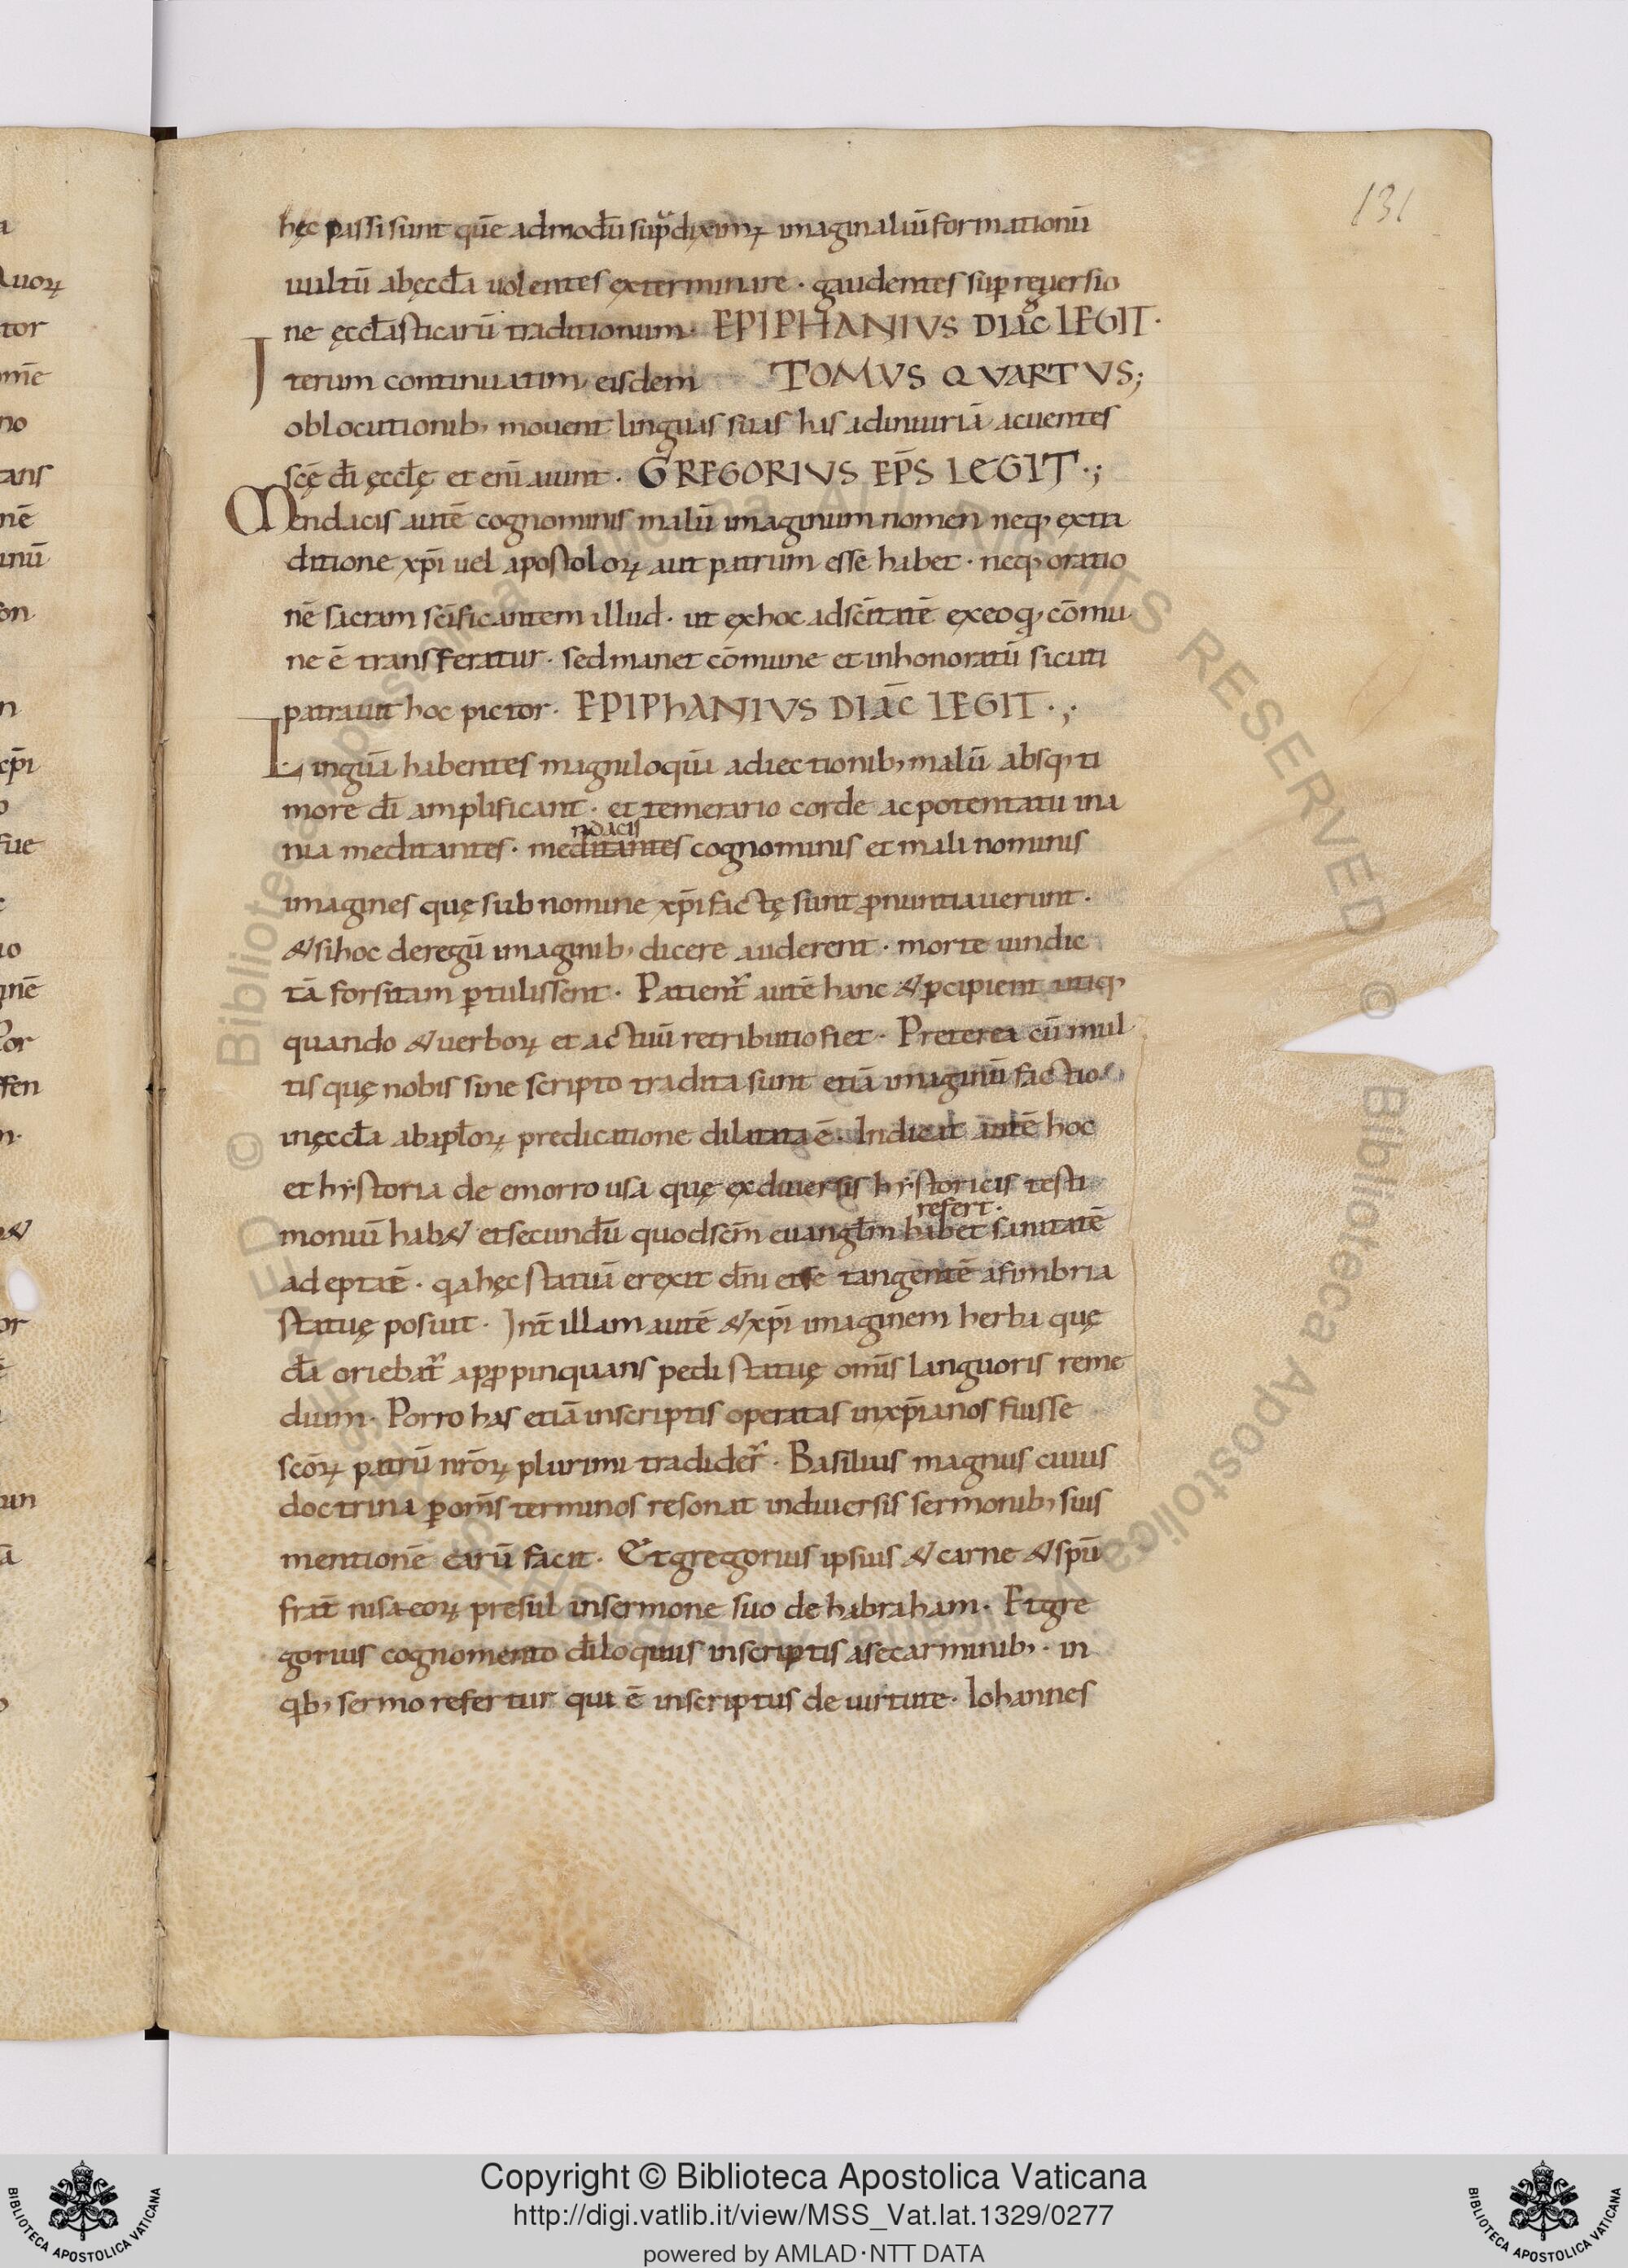 131
hęc passi sunt quē admodū supͣ diximꝰ imaginaliū formationū
uultū ab ęccła uolentes exterminare · gaudentes suꝑ reuersio
ne ęccłasticarū traditionum · EPIPHANIVS DIAC̄ LEGIT ·
Iterum continuatim eisdem TOMVS QVARTVS;
oblocutionib; mouent linguas suas has ad iniuriā acuentes
scę̄ dī ęccłę et enī aiunt · GREGORIVS EP̄S LEGIT ·;
Mendacis autē cognominis malū imaginum nomen neq; ex tra
ditione xp̄i uel apostoloꝝ aut patrum esse habet · neq; oratio
nē sacram scīficantem illud · ut ex hoc ad scītatē ex eo q; cōmu
ne ē transferatur · sed manet cōmune et inhonoratū sicuti
patrauit hoc pictor · EPIPhANIVS DIAC̄ LEGIT ·;·
Linguā habentes magniloquā adiectionib; malū absq; ti
more dī amplificant · et temerario corde ac potentatu ina
ndacis
nia meditantes · meditantes cognominis et mali nominis
imagines quę sub nomine xp̄i factę sunt ꝓnuntiauerunt ·
& si hoc de regū imaginib; dicere auderent · morte uindic
tā forsitam ꝑtulissent · Patient̃ autē hanc & ꝑcipient utiq;
quando & uerboꝝ et actuū retributio fiet · Preterea cū mul
tis quę nobis sine scripto tradita sunt etiā imaginū factio
in ęccła ab apłoꝝ predicatione dilatata ē · Indicat autē hoc
et hẏstoria de emorrousa quę ex diuersis hẏstoricis testi
refert ·
moniū hab& et secundū quod scm̄ euangłm habet sanitatē
adeptaē · q̨a hęc statuā erexit dn̄i et se tangentē a fimbria
statuę posuit · Int̄ illam autē & xp̄i imaginem herba quę
dā oriebat̃ apꝓpinquans pedi statuę om̄is languoris reme
dium · Porro has etiā in scriptis operatas in xp̄ianos fuisse
scōꝝ patrū nrōꝝ plurimi tradider̃ · Basilius magnus cuius
doctrina ꝑ om̄s terminos resonat in diuersis sermonib; suis
mentionē earū facit · Et gregorius ipsius & carne & spū
frat̄ nisaeoꝝ presul in sermone suo de habraham · Et gre
gorius cognomento dīloquus in scriptis a se carminib; · in
qb; sermo refertur qui ē inscriptus de uirtute · Iohannes
Copyright © Biblioteca Apostolica Vaticana
http://digi.vatlib.it/view/MSS_Vat.lat.1329/0277
powered by AMLAD·NTT DATA